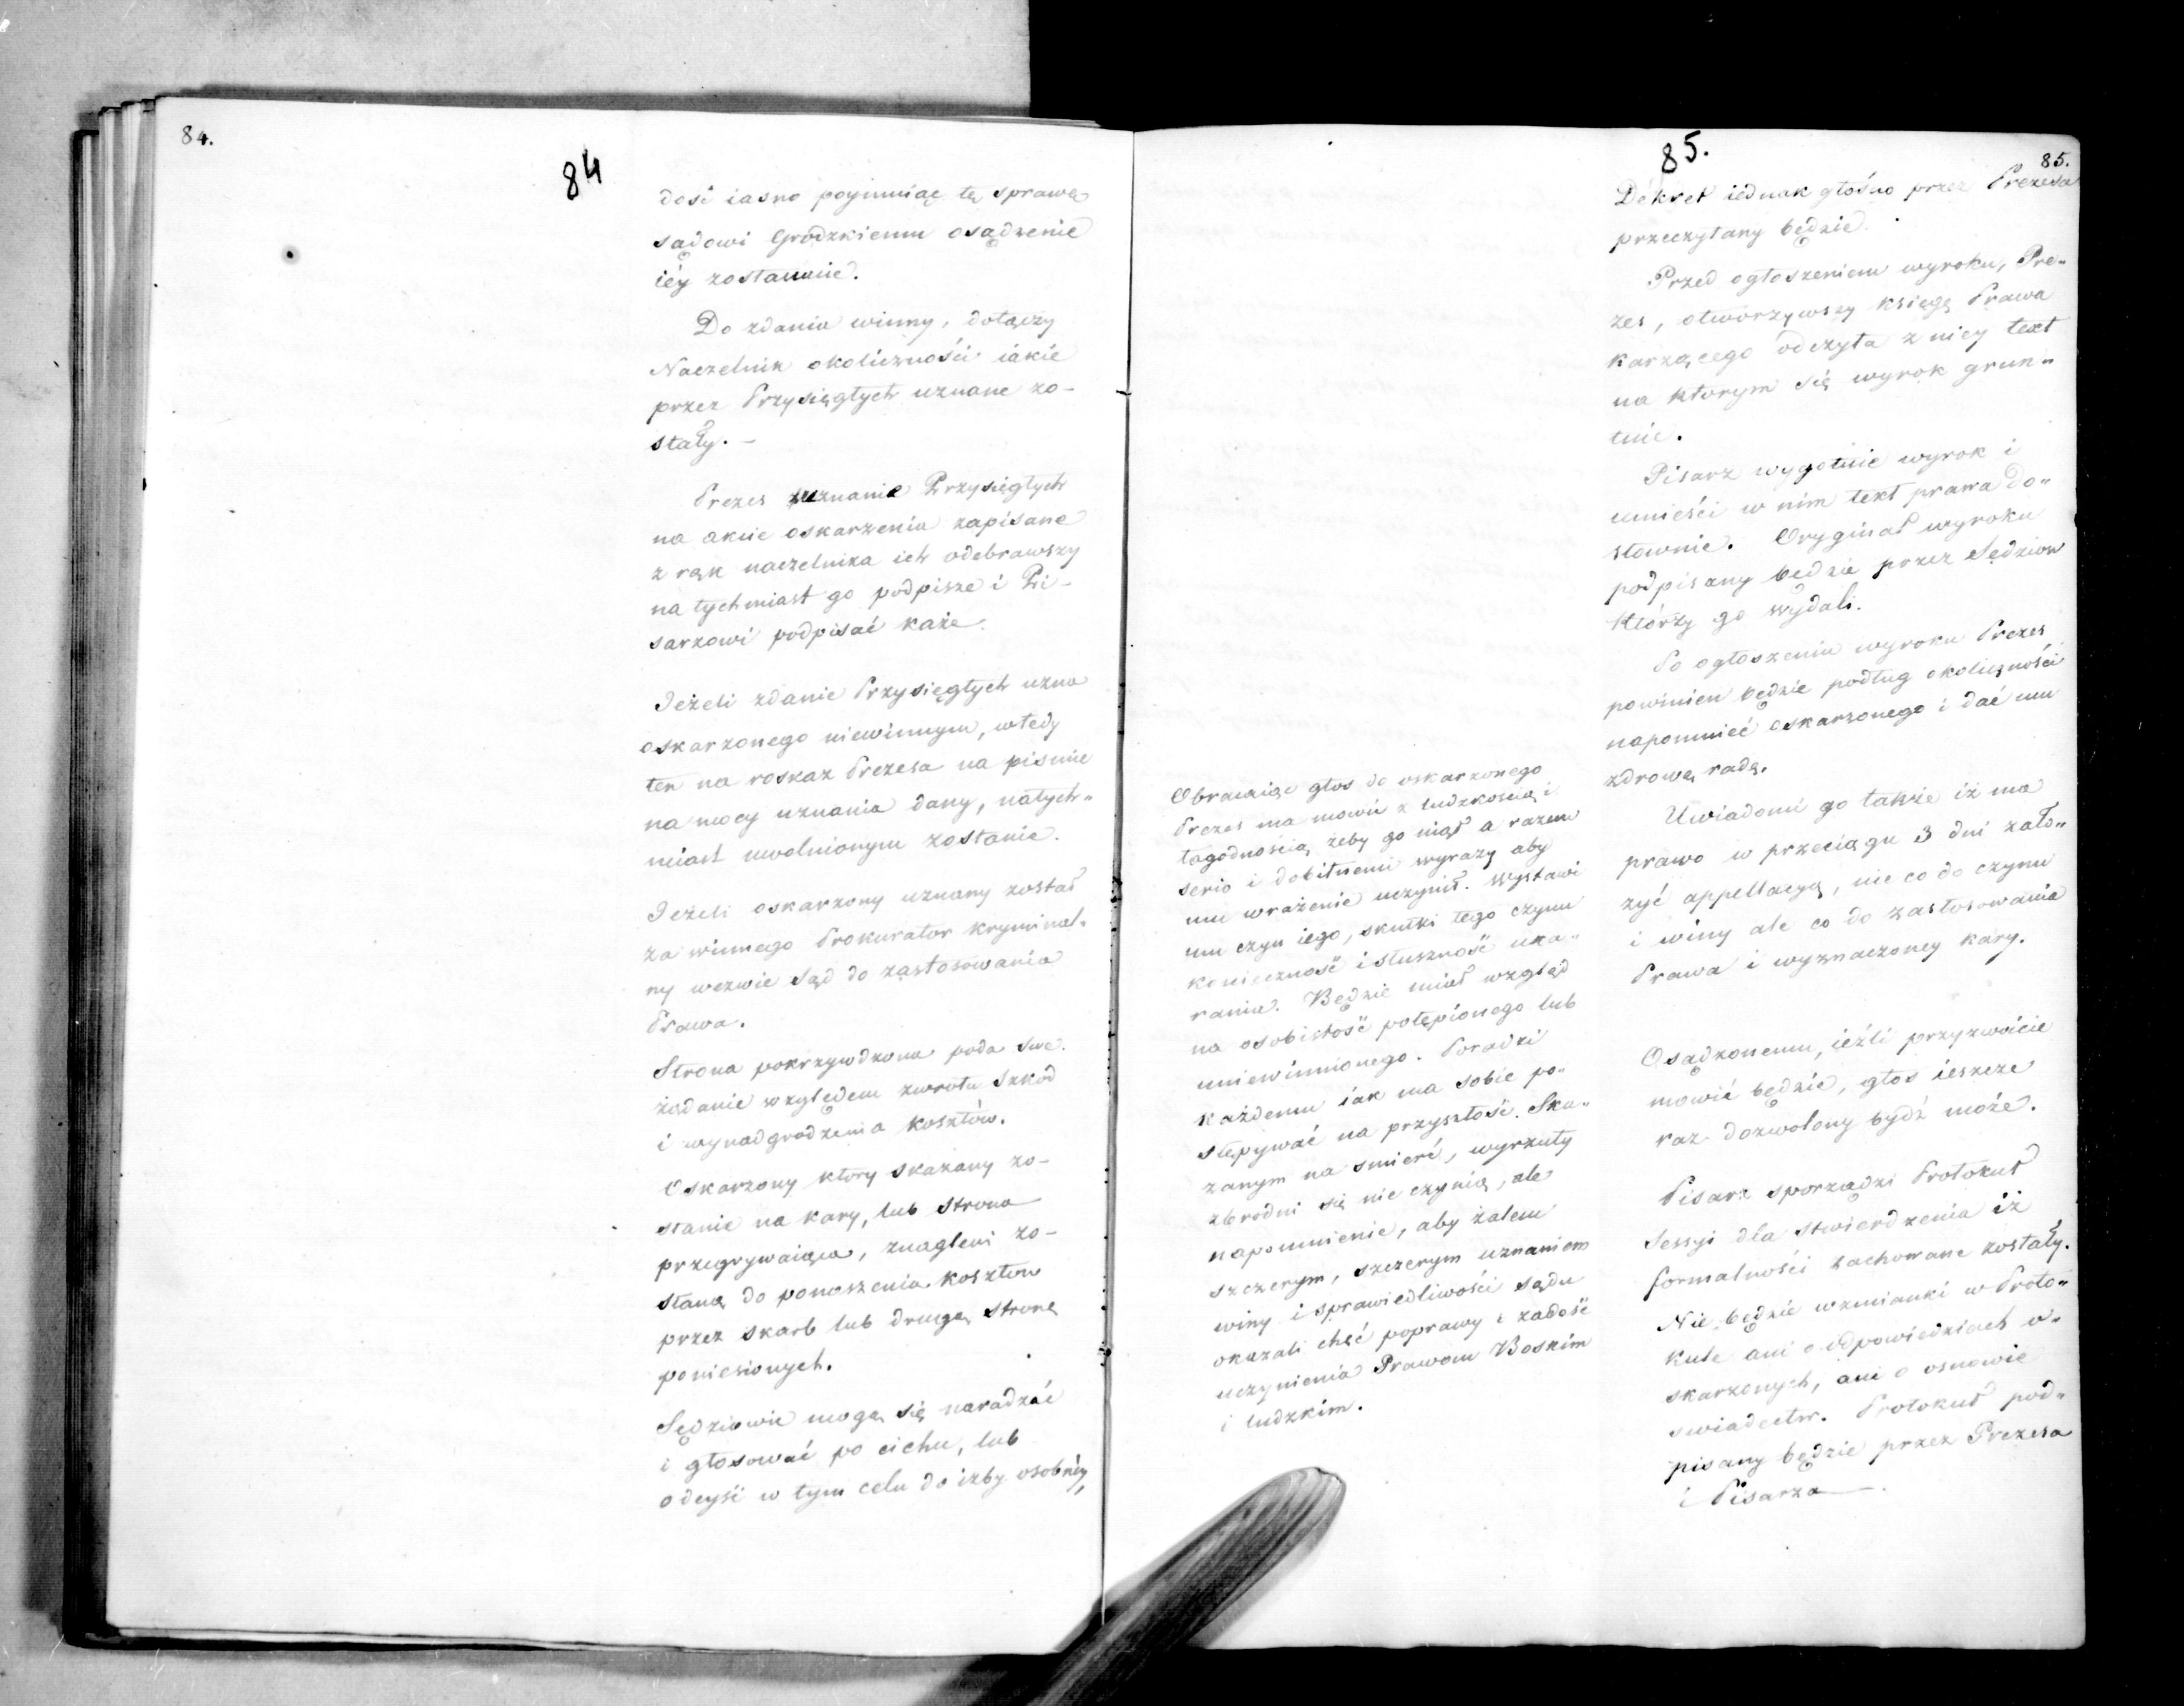 84.
84
dość iasno poymuiąc tę sprawę
sądowi Grodzkiemu osądzenie
iéy zostawuie.
Do zdania winny, dołączy
Naczelnik okoliczności iakie
przez Przysięgłych uznane zo-
stały. -
Prezes uznanie Przysięgłych
na akcie oskarzenia zapisane
z rąk naczelnika ich odebrawszy
natychmiast go podpisze i Pi-
sarzowi podpisać każe.
Jeżeli zdanie Przysięgłych uzna
oskarzonego niewinnym, wtedy
ten na roskaz Prezesa na pismie
na mocy uznania dany, natych„
miast uwolnionym zostanie.
Jeżeli oskarzony uznany został
za winnego Prokurator kryminal„
ny wezwie Sąd do zastosowania
Prawa.
Strona pokrzywdzona poda swe
żądanie względem zwrotu szkód
i wynadgrodzenia kosztów.
Oskarzony ktory skazany zo-
stanie na kary, lub strona
przegrywaiąca, znagleni zo-
staną do ponoszenia kosztow
przez skarb lub drugą stronę
poniesionych.
Sędziowie mogą się naradzać
i głosować po cichu, lub
odeyść w tym celu do izby osobnéy,
85.
85.
Dekret iednak głośno przez Prezesa
przeczytany będzie.
Przed ogłoszeniem wyroku, Pre„
zes, otworzywszy księgę Prawa
karzącego odczyta z niey text
na ktorym się wyrok grun„
tuie.
Pisarz wygotuie wyrok i
umieści w nim text prawa do„
słownie. Oryginał wyroku
podpisany będzie przez Sędziow
którzy go wydali.
Po ogłoszeniu wyroku Prezes
powinien będzie podług okoliczności
napomnieć oskarzonego i dać mu
zdrową radę.
Uwiadomi go także iż ma
prawo w przeciągu 3 dni zało„
zyć appellacyą, nie co do czynu
i winy ale co do zastosowania
Prawa i wyznaczoney kary.
Osądzonemu, ieźli przyzwoicie
mowić będzie, głos ieszcze
raz dozwolony bydź może.
Pisarz sporządzi Protokuł
Sessyi dla stwierdzenia iż
formalności zachowane zostały.
Nie będzie wzmianki w Proto„
kule ani o odpowiedziach o„
skarzonych, ani o osnowie
swiadectw. Protokuł pod„
pisany będzie przez Prezesa
i Pisarza.
Obracaiąc głos do oskarzonego
Prezes ma mowić z ludzkością i
łagodnością żeby go niął a razem
serio i dobitnemi wyrazy aby
mu wrażenie uczynił. Wystawi
mu czyn iego, skutki tego czynu
konieczność i słuszność uka„
rania. Będzie miał wzgląd
na osobistość potępionego lub
uniewinnionego. Poradzi
każdemu iak ma sobie po„
stępywać na przyszłość. Ska„
zanym na smierć, wyrzuty
zbrodni się nie czynią, ale
napomnienie, aby żalem
szczerym, szczerym uznaniem
winy i sprawiedliwości sądu
okazali chęć poprawy i zadość
uczynienia Prawom Boskim
i ludzkim.